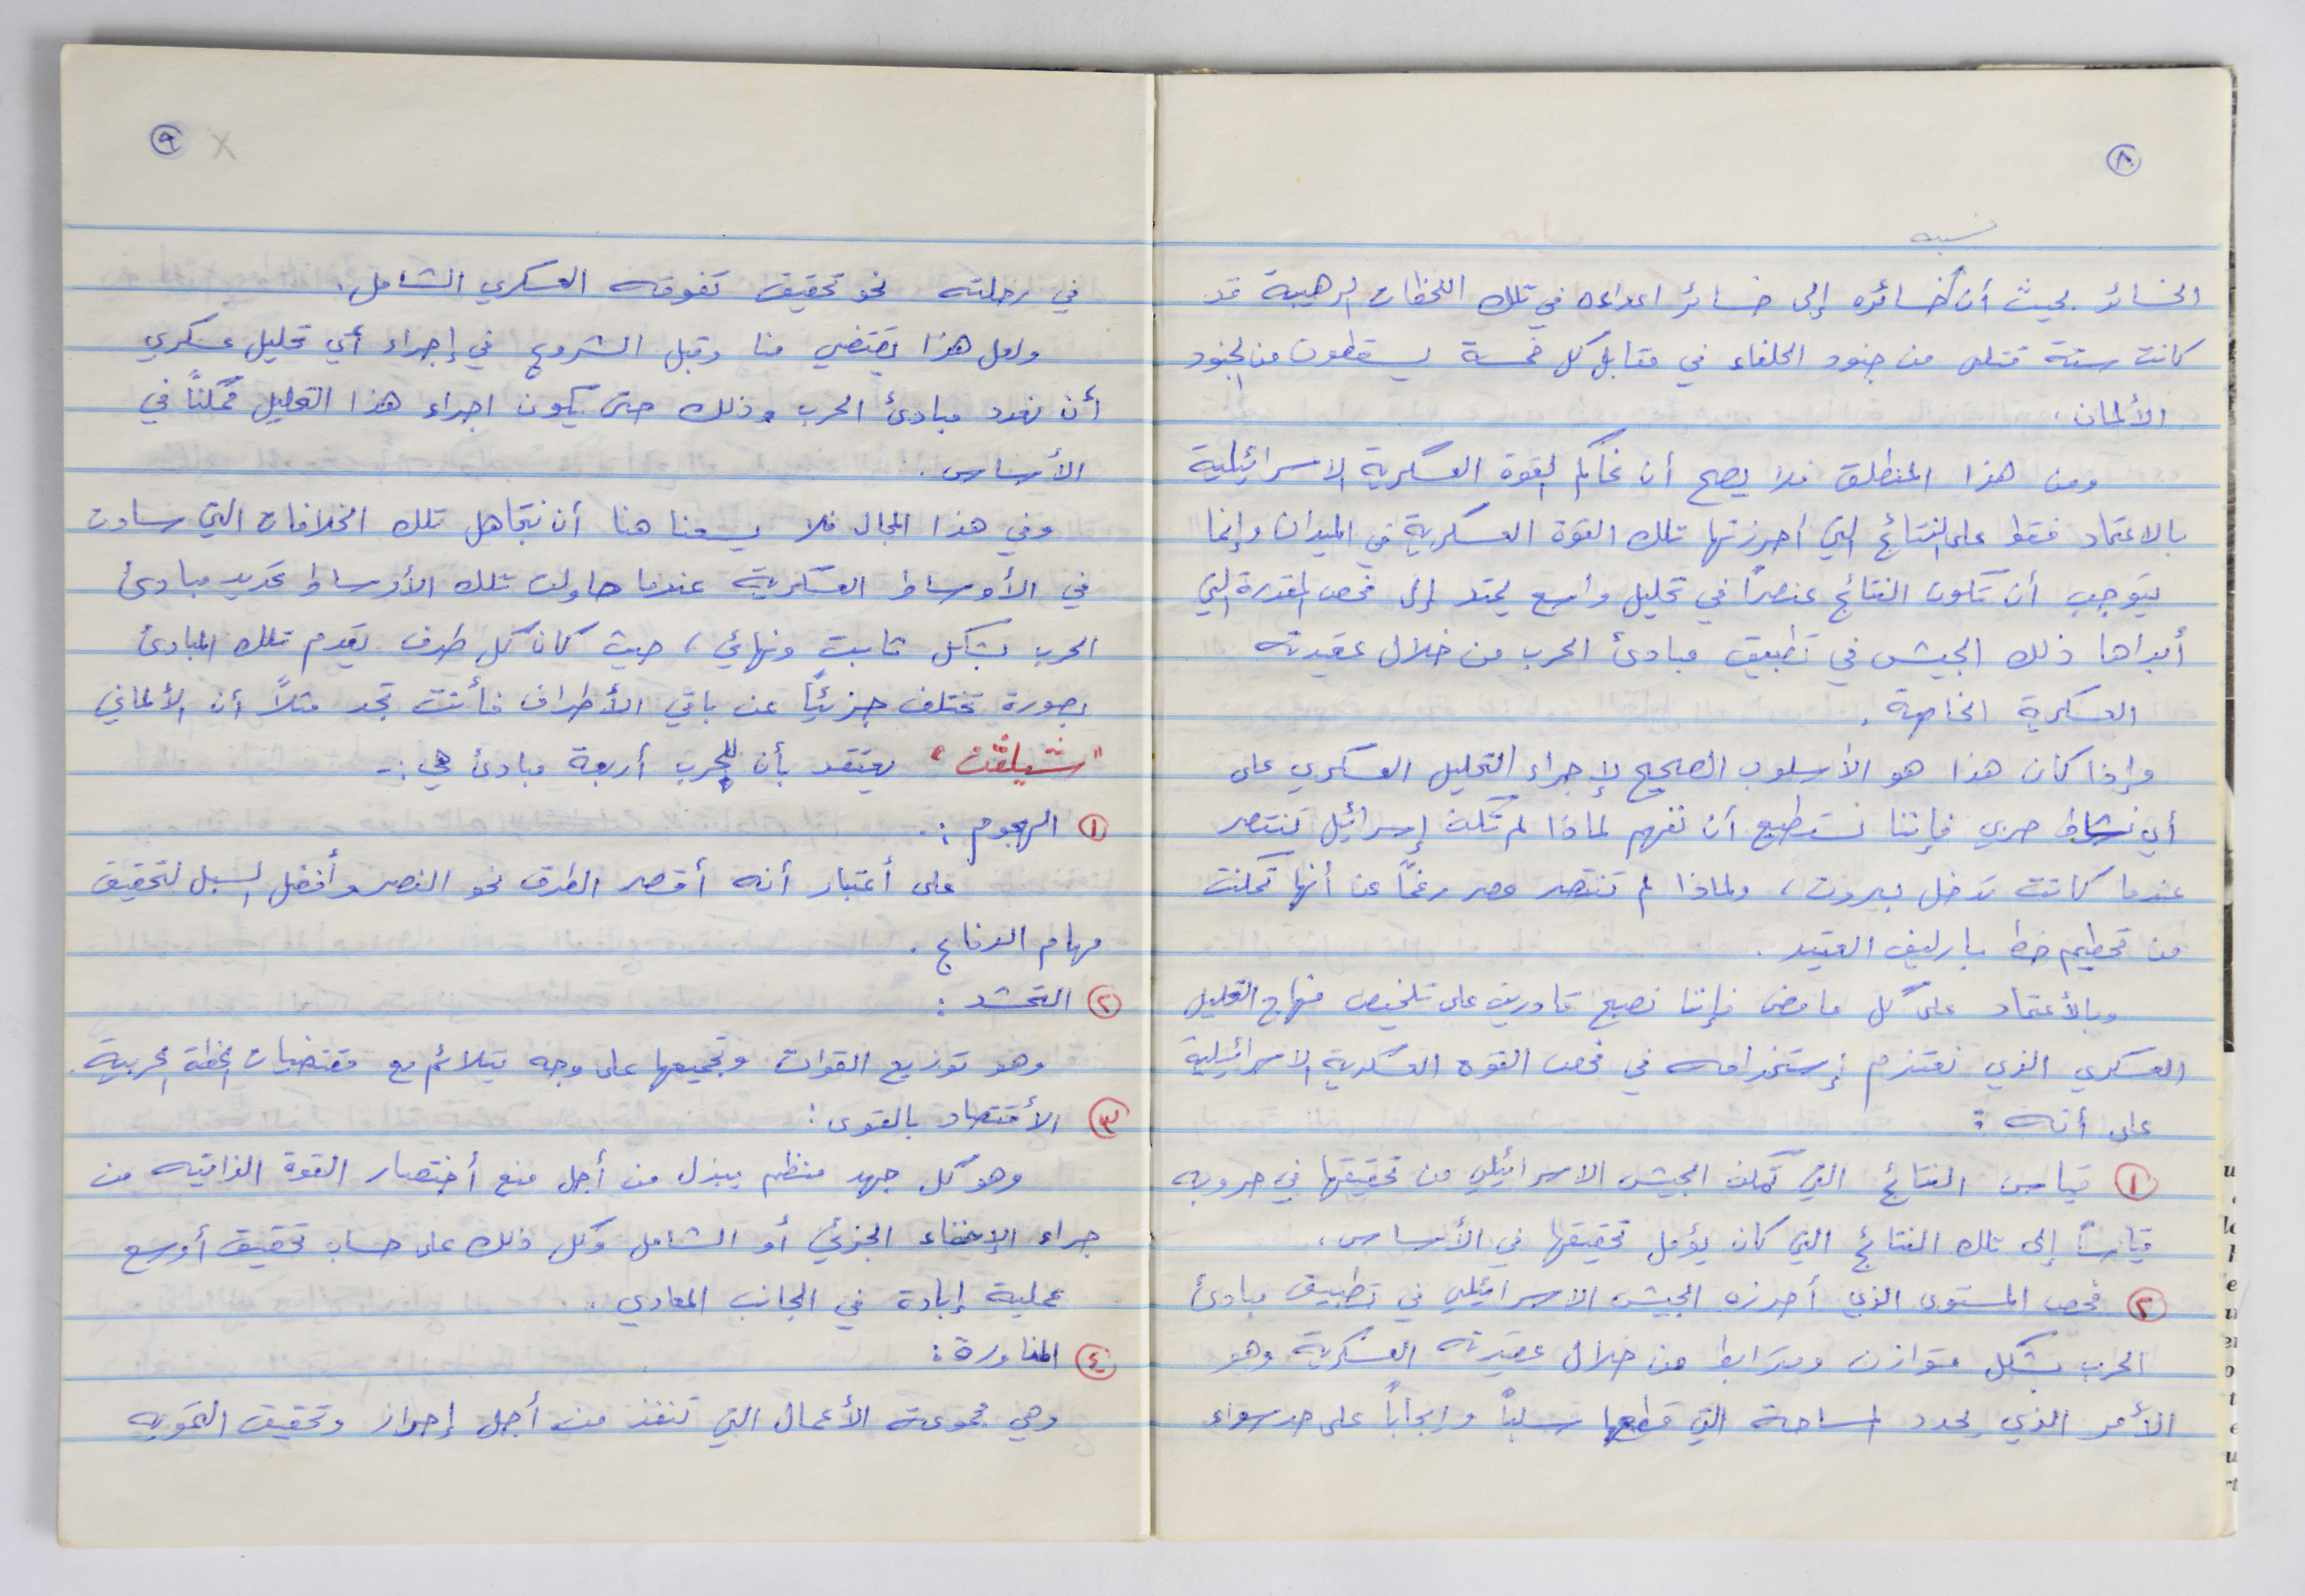 ٨
نسبه
الخسائر بحيث أن خسائره إلى خسائر اعداءه في تلك اللحظات الرهيبة قد
كانت ستة قتلى من جنود الحلفاء في مقابل كل خمسة يسقطون من الجنود
الألمان.
ومن هذا المنطلق فلا يصح أن نحاكم القوة العسكرية الاسرائيلية
بالاعتماد فقط على النتائج التي أحرزتها تلك القوة العسكرية في الميدان وإنما
يتوجب أن تكون النتائج عنصراً في تحليل واسع يمتد إلى فحص المقدرة التي
أبداها ذلك الجيش في تطبيق مبادئ الحرب من خلال عقيدته
العسكرية الخاصة.
وإذا كان هذا هو الأسلوب الصحيح لإجراء التحليل العسكري على
أي نشاط حربي فإننا نستطيع أن نفهم لماذا لم تكن إسرائيل تنتصر
عندما كانت تدخل بيروت، ولماذا لم تنتصر مصر رغماً عن أنها تمكنت
من تحطيم خط بارليف العتيد.
وبالأعتماد على كل ما مضى فإننا نصبح قادرين على تلخيص منهاج التحليل
العسكري الذي نعتزم إستخدامه في فحص القوه العسكرية الاسرائيلية
على أنه :
١ قياس النتائج التي تمكن الجيش الاسرائيلي من تحقيقها في حروبه
قياساً إلى تلك النتائج التي كان يؤمل تحقيقها في الأساس.
٢ فحص المستوى الذي أحرزه الجيش الاسرائيلي في تطبيق مبادئ
الحرب بشكل متوازن ومترابط من خلال عقيدته العسكرية وهو
الأمر الذي يحدد المساحة التي قطعها سلباً وايجاباً على حد سواء
٩ X
في رحلته نحو تحقيق تفوقه العسكري الشامل.
ولعل هذا يقتضي منا وقبل الشروع في إجراء أي تحليل عسكري
أن نعدد مبادئ الحرب وذلك حتى يكون اجراء هذا التحليل ممكناً في
الأساس.
وفي هذا المجال فلا يسعنا هنا أن نتجاهل تلك الخلافات التي سادت
في الأوساط العسكرية عندما حاولت تلك الأوساط تحديد مبادئ
الحرب بشكل ثابت ونهائي، حيث كان كل طرف يقدم تلك المبادئ
بصورة تختلف جزئياً عن باقي الأطراف فأنت تجد مثلاً أن الألماني
"شيلفن" يعتقد بأن للحرب أربعة مبادئ هي :-
١ الهجوم :.
على أعتبار أنه أقصر الطرق نحو النصر وأفضل السبل لتحقيق
مهام الدفاع.
٢ التحشد :
وهو توزيع القوات وتجميعها على وجه يتلائم مع مقتضيات الخطة الحربية.
٣ الأقتصاد بالقوى :
وهو كل جهد منظم يبذل من أجل منع أختصار القوة الذاتيه من
جراء الإفناء الجزئي أو الشامل وكل ذلك على حساب تحقيق أوسع
عملية إبادة في الجانب المعادي.
٤ المناورة :
وهي مجموعة الأعمال التي تنفذ من أجل إحراز وتحقيق التمويه